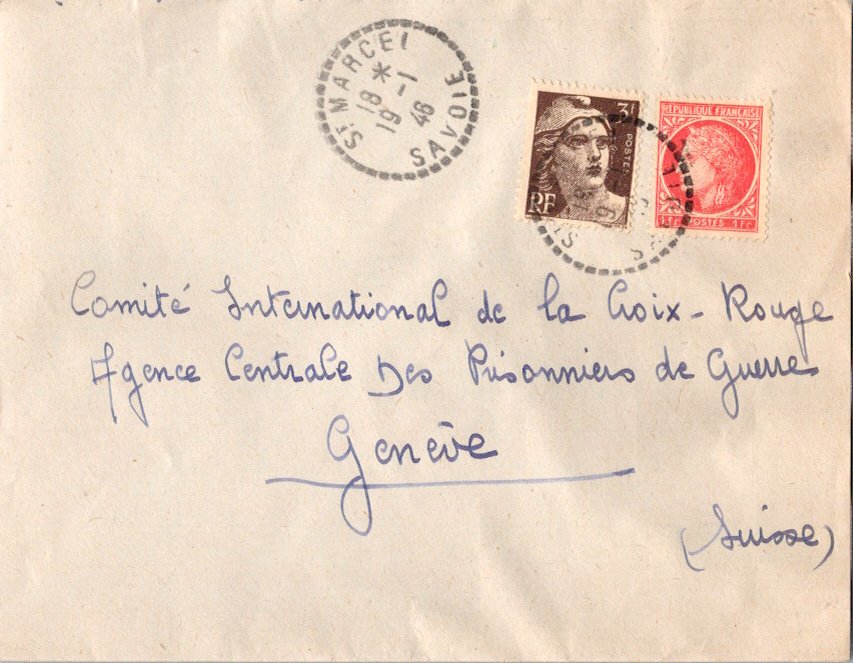 ST MARCEL
*
18
19 -1
46
SAVOIE
3F
POSTES
RF
REPUBLIQUE FRANÇAISE
1 Fr POSTES 1 Fr
Comité International de la Croix-Rouge
Agence Centrale Des Prisonniers de Guerre
Genève
(Suisse)